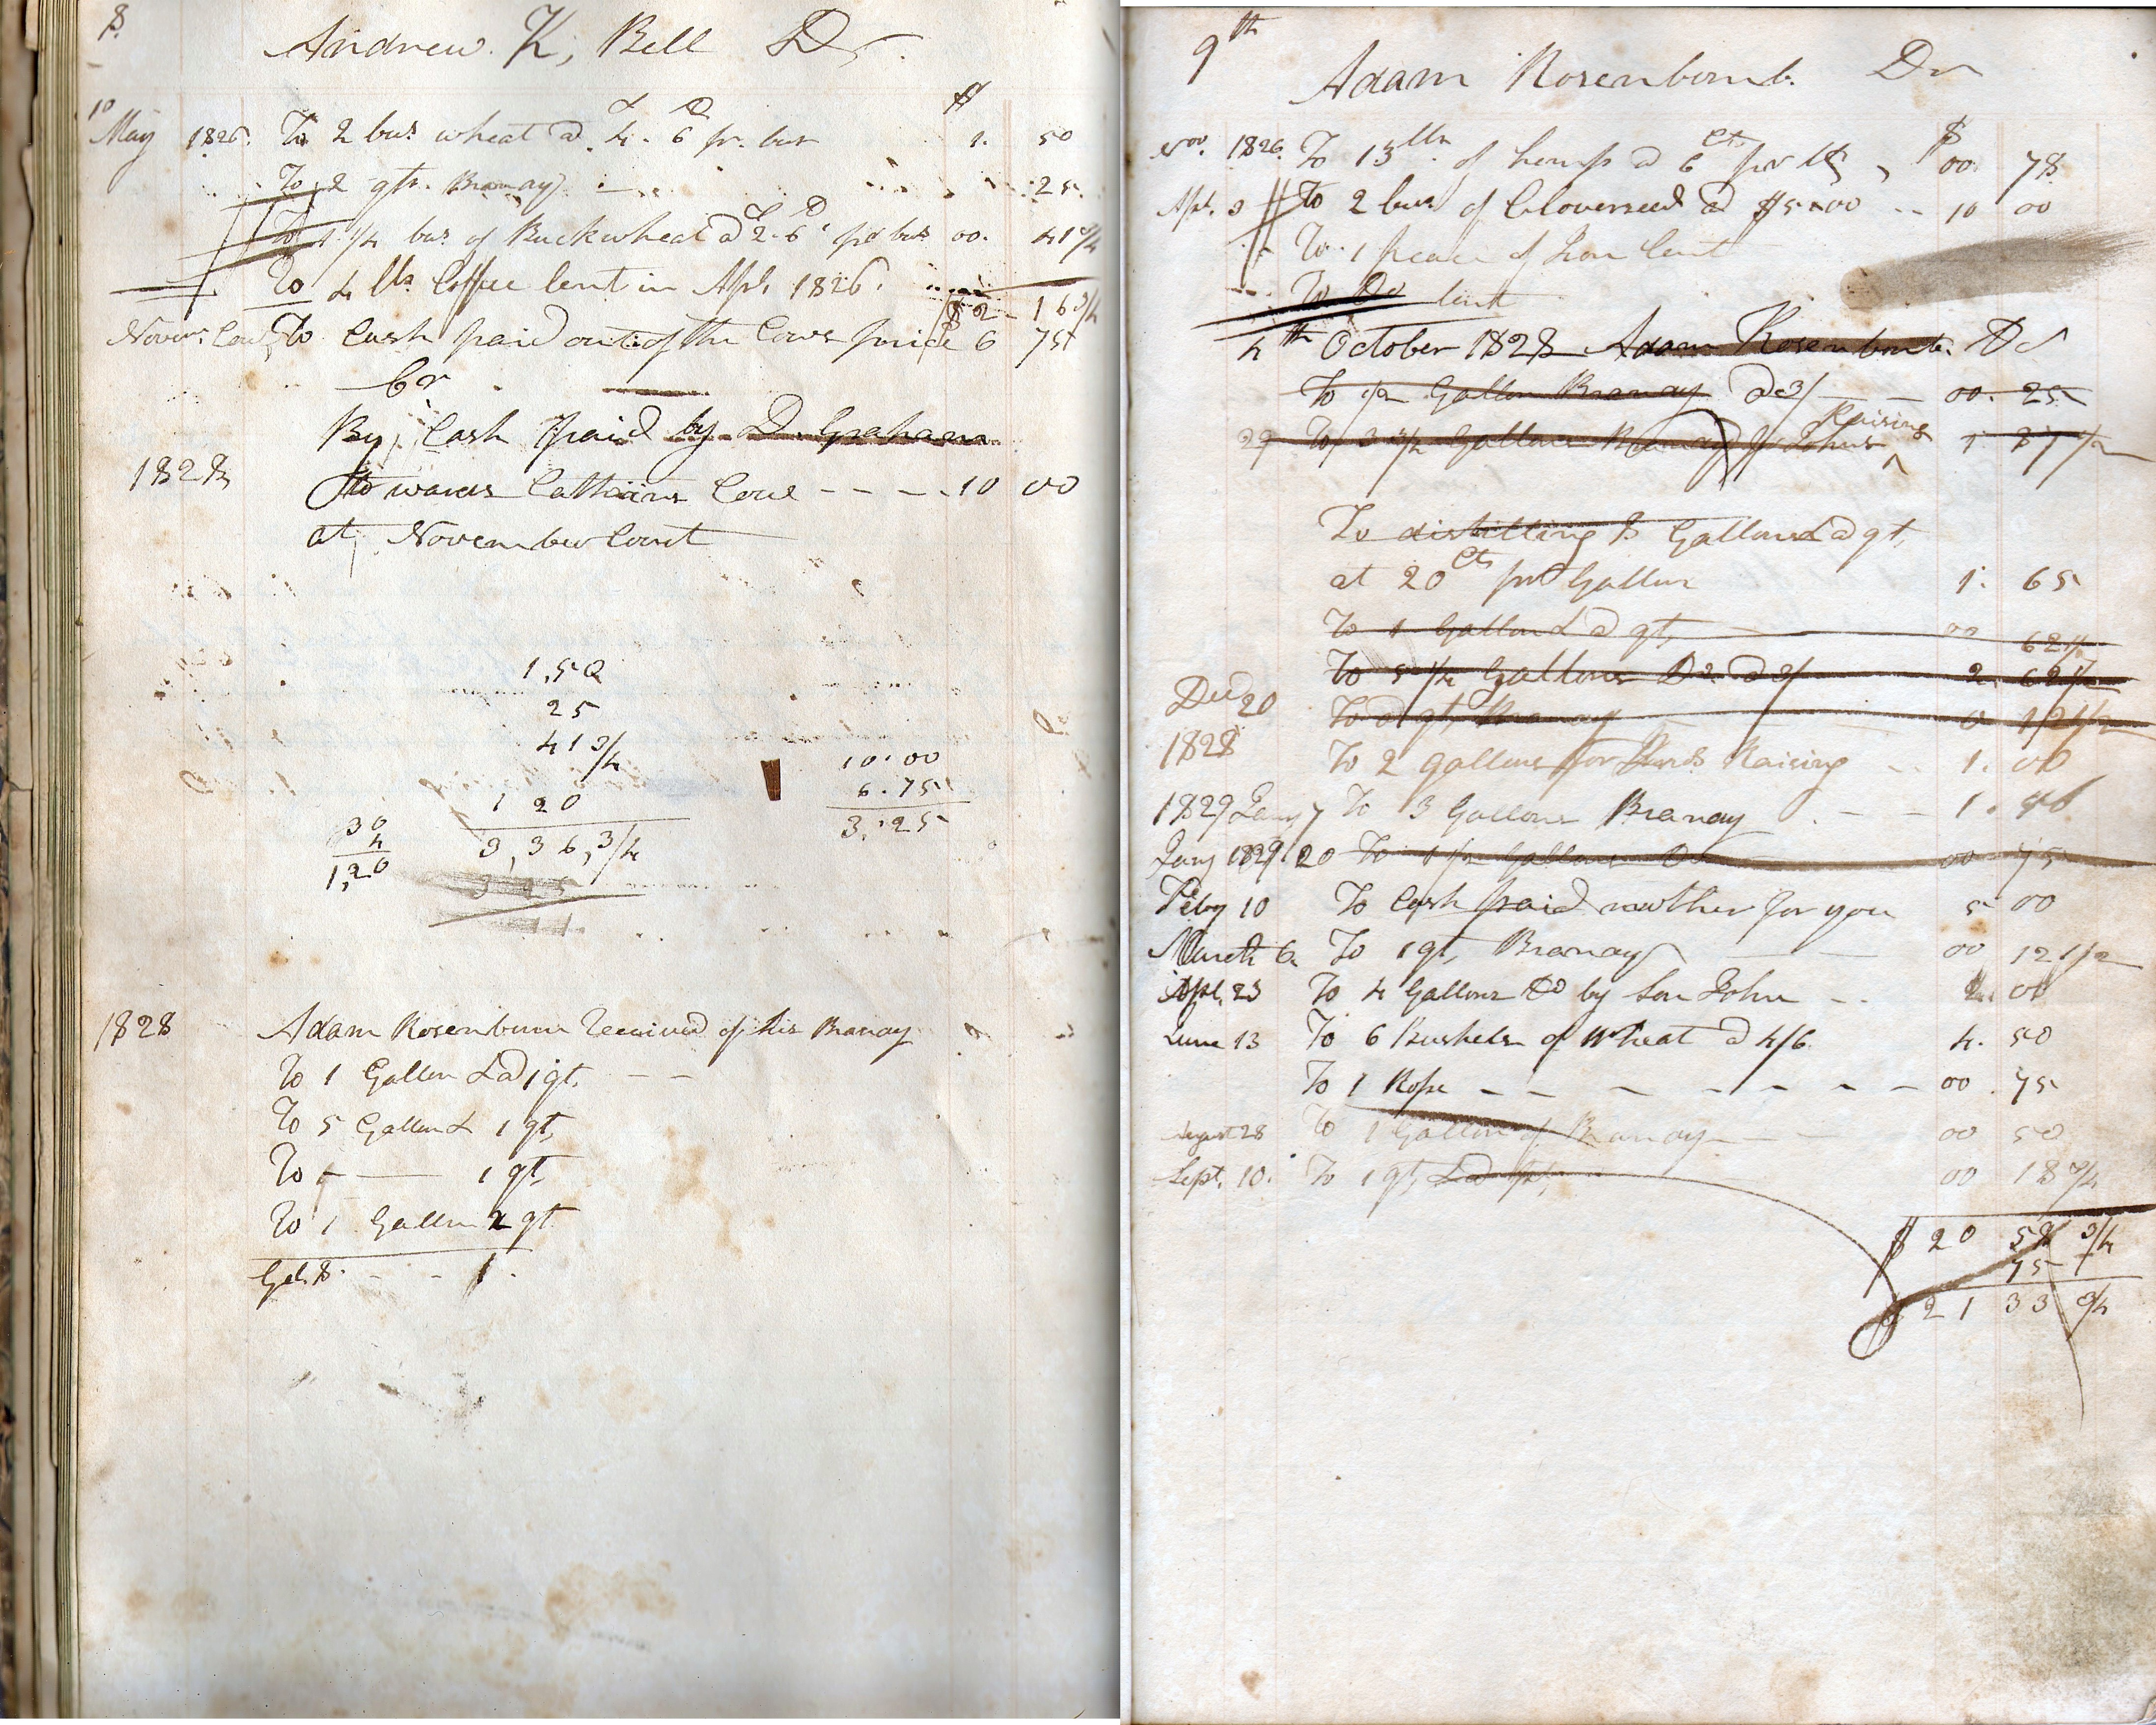 8.
Andrew. K, Bell Dr.
10 $
May 1826. To 2 bus wheat @ 4. 6 pr. bus 1. 50
To 2 qts. Branday 25
To 1 1/4 bus of Buckwheat @ 2. 6 pr bus 00. 41 3/4
To 4 lbs Coffee lent in Apl. 1826.
$ 2 - 16 3/4
Novem. Court To Cash paid out of the Cows price 6 75
Cr
By Cash paid by D. Graham
1828 towards Cow - - - 10 00
at November Court
1,50
25
41 3/4
1 20
3,36,3/4
3 25
11
30
4
1,20
10.00
6.75
3.25
1828 Adam Rosenbum Received of his Branday
To 1 Gallon & 1 qt. - -
To 5 Gallon & 1 qt,
To - 1 qt,
To 1 Gallon 2 qt
Gal. 8. - - 1.
9th
Adam Rosenbomb. Dr
$
Nov. 1826. To 13 lbs. of hemp @ 6 Cts pr lb, 00. 78
Apl. 3 To 2 bus of Cloverseed @ $5.00 - - 10 00
To 1 peace of Iron lent
To Do lent
4th October 1828 Adam Rosenbomb. Dr
To 1/2 Gallon Branday @ 3/ - - 00. 25
Raising
29 To 3 3/4 Gallons Branday for Johns 1 87 1/2
To distilling 8 Gallons & a qt,
at 20 Cts pr Gallon 1. 65
To 1 Gallon & a qt, 00 62 1/2
To 5 1/4 Gallons Do @ 3/ 2. 62 1/2
Decd 20 To a qt, Branday 0 12 1/2
1828 To 2 gallons for Raising - - 1. 00
1829 Jany 7 To 3 Gallons Branday - - 1.
Jany 1829 20 To 1 1/2 Gallons Do 00 75
Feby 10 To Cash paid mother for you 5 00
March 6. To 1 qt, Branday 00 12 1/2
Apl. 23 To 4 Gallons Do by Son John - - 2. 00
June 13 To 6 Bushels of Wheat @ 4/6 4. 50
To 1 Rope - - - - - - - 00. 75
August 28 To 1 Gallon of Branday - - 00 50
Sept. 10. To 1 qt, & a pt, 00 18 3/4
$ 20 58 3/4
75
$ 21 33 3/4